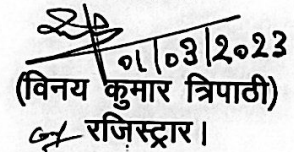 01/03/2023
(विनय कुमार त्रिपाठी)
रजिस्ट्रार।